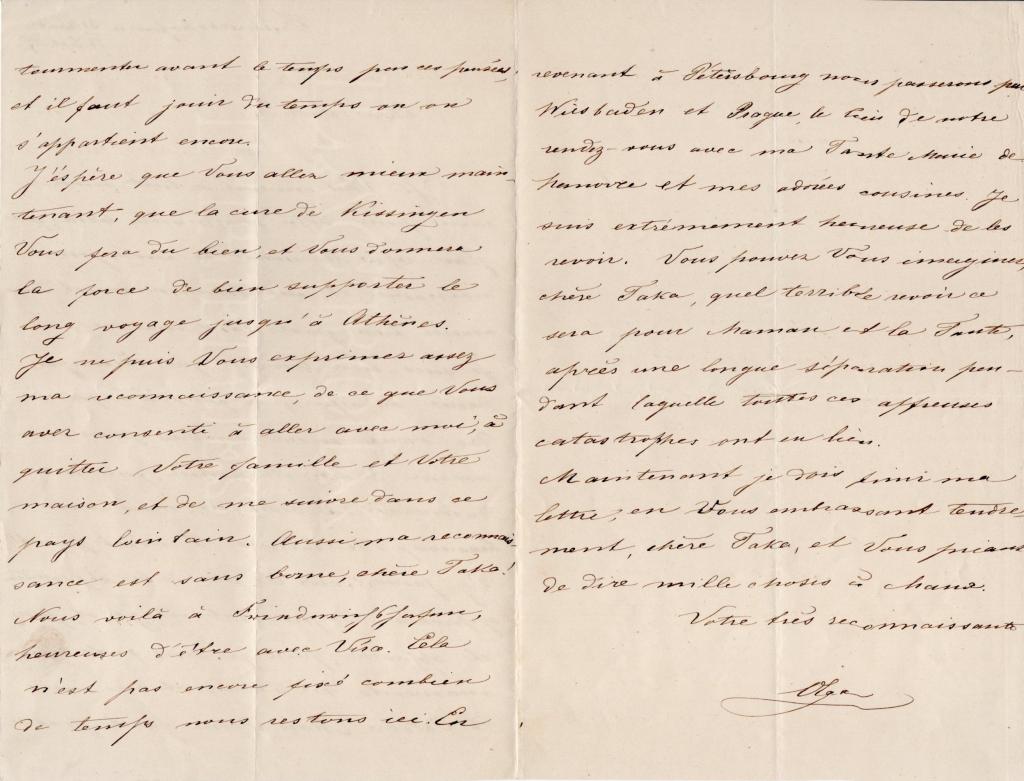 tourmenter avant le temps par ces pensées,
et il faut jouir du temps où on
s'appartient encore.
J'éspère que Vous allez mieux main-
tenant, que la cure de Kissingen
Vous fera du bien, et Vous donnera
la force de bien supporter le
long voyage jusqu'à Athènes.
Je ne puis Vous exprimer assez
ma reconnaissance, de ce que Vous
avez consenti à aller avec moi, à
quitter Votre famille et Votre
maison, et de me suivre dans ce
pays lointain. Aussi ma reconnais-
sance est sans borne, chère Taka!
Nous voilà à Friedrichshafen,
heureuses d'être avec Véra. Cela
n'est pas encore fixé combien
de temps nous restons ici. En
revenant à Pétersbourg nous passerons par
Wiesbaden et Prague, le lieu de notre
rendez-vous avec ma Tante Marie de
hanovre et mes adorées cousines. Je
suis extrémement heureuse de les
revoir. Vous pouvez Vous imaginer,
chère Taka, quel terrible revoir ce
sera pour Maman et la Tante,
après une longue séparation pen-
dant laquelle toutes ces affreuses
catastrophes ont eu lieu.
Maintenant je dois finir ma
lettre, en Vous embrassant tendre-
ment, chère Taka, et Vous priant
de dire mille choses à
Votre très reconnaissante
Olga